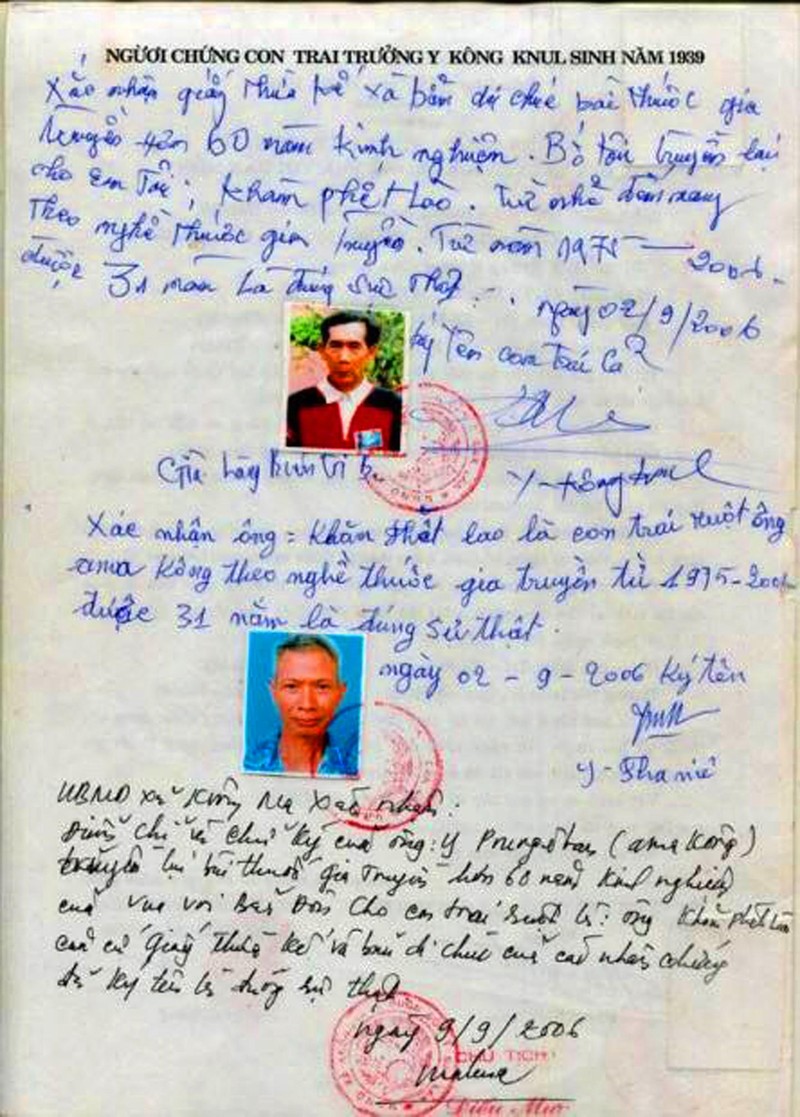 NGƯỜI CHỨNG CON TRAI TRƯỞNG Y KÔNG KNUL SINH NĂM 1939
Xác nhận giấy thừa kế và bản di chúc bài thuốc gia
truyền hơn 60 năm kinh nghiệm. Bố tôi truyền lại
cho Em Tôi; Khăm phết Lào. Từ nhỏ đến nay
Theo nghề thuốc gia truyền. Từ năm 1975 — 2006.
được 31 năm Là đúng sự thật.
ngày 02/9/2006
ký Tên con trai Cả
Già làng
Y-Kông knul
Xác nhận ông = Khăn phết lao là con trai ruột ông
ama Kông theo nghề thuốc gia truyền từ 1975-2006
được 31 năm là đúng sử thật.
ngày 02 - 9 - 2006 Ký tên
UBND xã Krông Na Xác nhận:
chữ ký của ông: Y (ama Kông)
truyền lại bài thuốc gia truyền hơn 60 năm kinh nghiệm
của vua voi Bản Đôn cho con trai ruột là: ông Khăm phết Lào
căn cứ giấy thừa kế và bản di chúc của các nhân chứng
đã ký tên là đúng sự thật
ngày 9/9/2006
CHỦ TỊCH